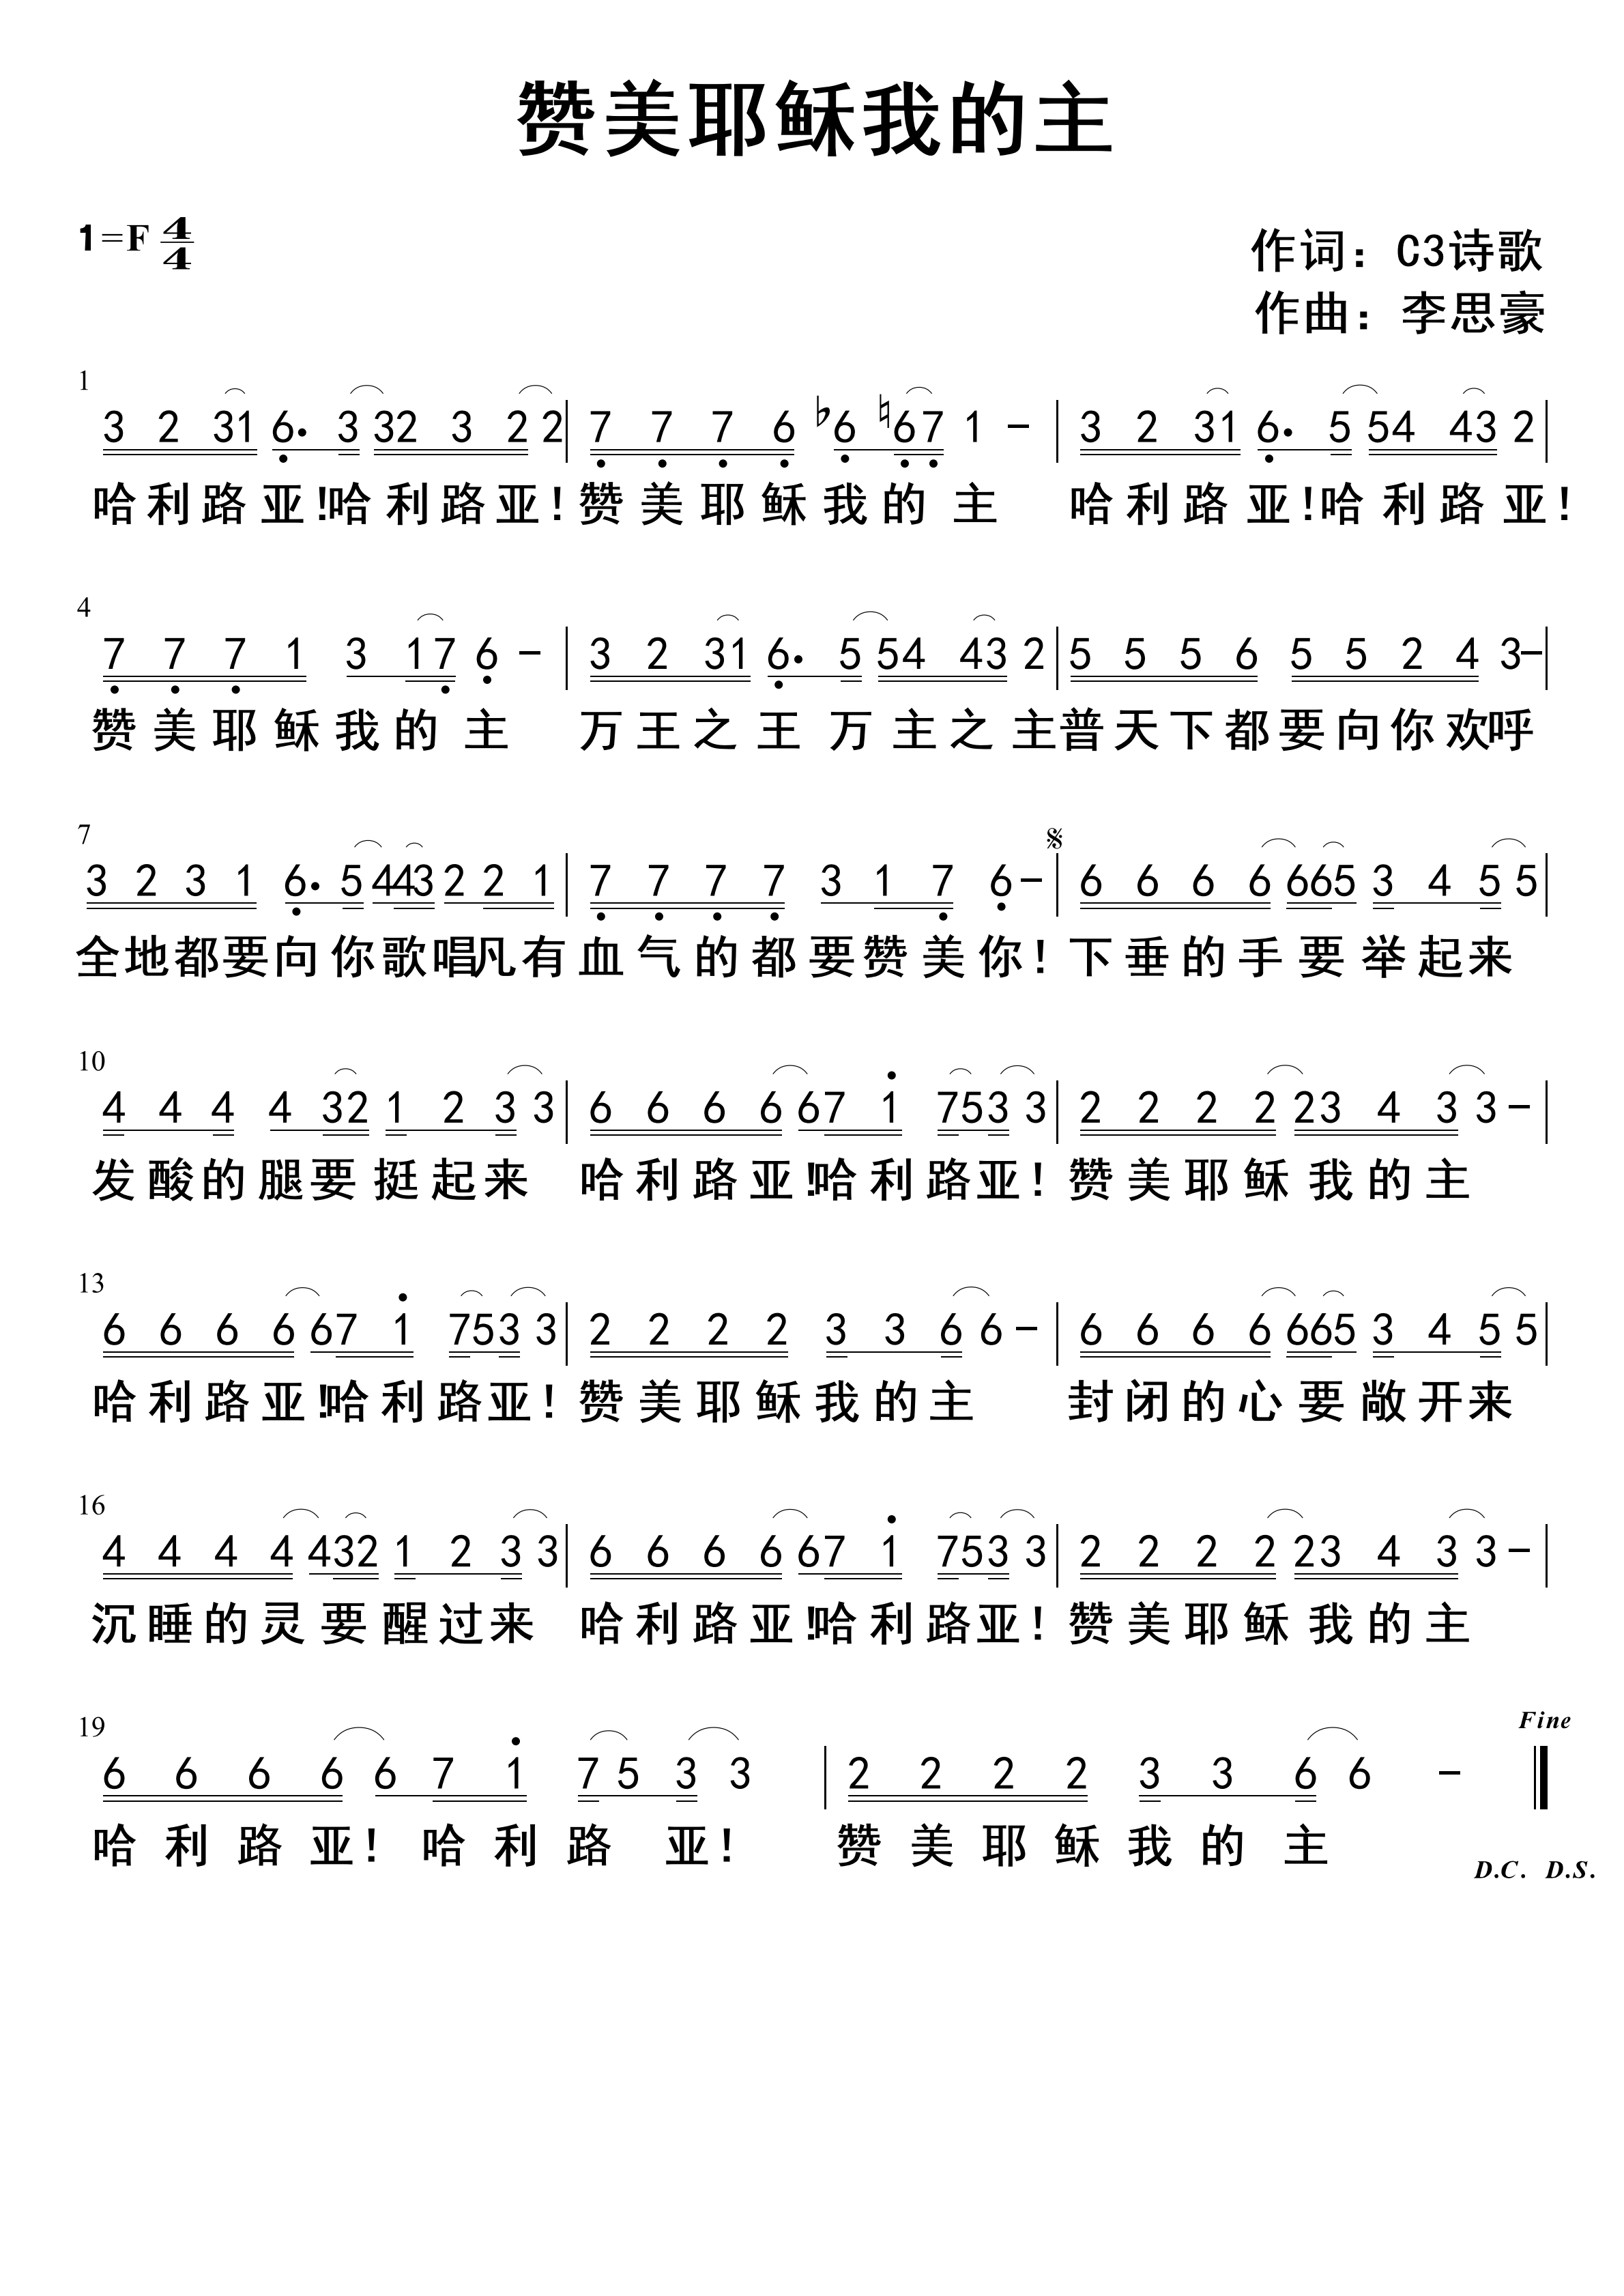 赞美耶稣我的主
1=F 4/4
作词：C3诗歌
作曲：李思豪
1
3 2 31 6. 3 32 3 2 2 | 7 7 7 6 ♭6 ♮67 1 - | 3 2 31 6. 5 54 43 2 |
哈利路亚!哈利路亚! 赞美耶稣我的主 哈利路亚!哈利路亚!
4
7 7 7 1 3 17 6 - | 3 2 31 6. 5 54 43 2 | 5 5 5 6 5 5 2 4 3 - |
赞美耶稣我的主 万王之王万主之主普天下都要向你欢呼
7
3 2 3 1 6. 5 443 2 2 1 | 7 7 7 7 3 1 7 6 - | 𝄋 6 6 6 6 665 3 4 5 5 |
全地都要向你歌唱凡有血气的都要赞美你! 下垂的手要举起来
10
4 4 4 4 32 1 2 3 3 | 6 6 6 6 67 1 753 3 | 2 2 2 2 23 4 3 3 - |
发酸的腿要挺起来 哈利路亚!哈利路亚! 赞美耶稣我的主
13
6 6 6 6 67 1 753 3 | 2 2 2 2 3 3 6 6 - | 6 6 6 6 665 3 4 5 5 |
哈利路亚!哈利路亚! 赞美耶稣我的主 封闭的心要敞开来
16
4 4 4 4 432 1 2 3 3 | 6 6 6 6 67 1 753 3 | 2 2 2 2 23 4 3 3 - |
沉睡的灵要醒过来 哈利路亚!哈利路亚! 赞美耶稣我的主
19
Fine
6 6 6 6 6 7 1 7 5 3 3 | 2 2 2 2 3 3 6 6 - ‖
哈利路亚! 哈利路亚! 赞美耶稣我的主
D.C. D.S.